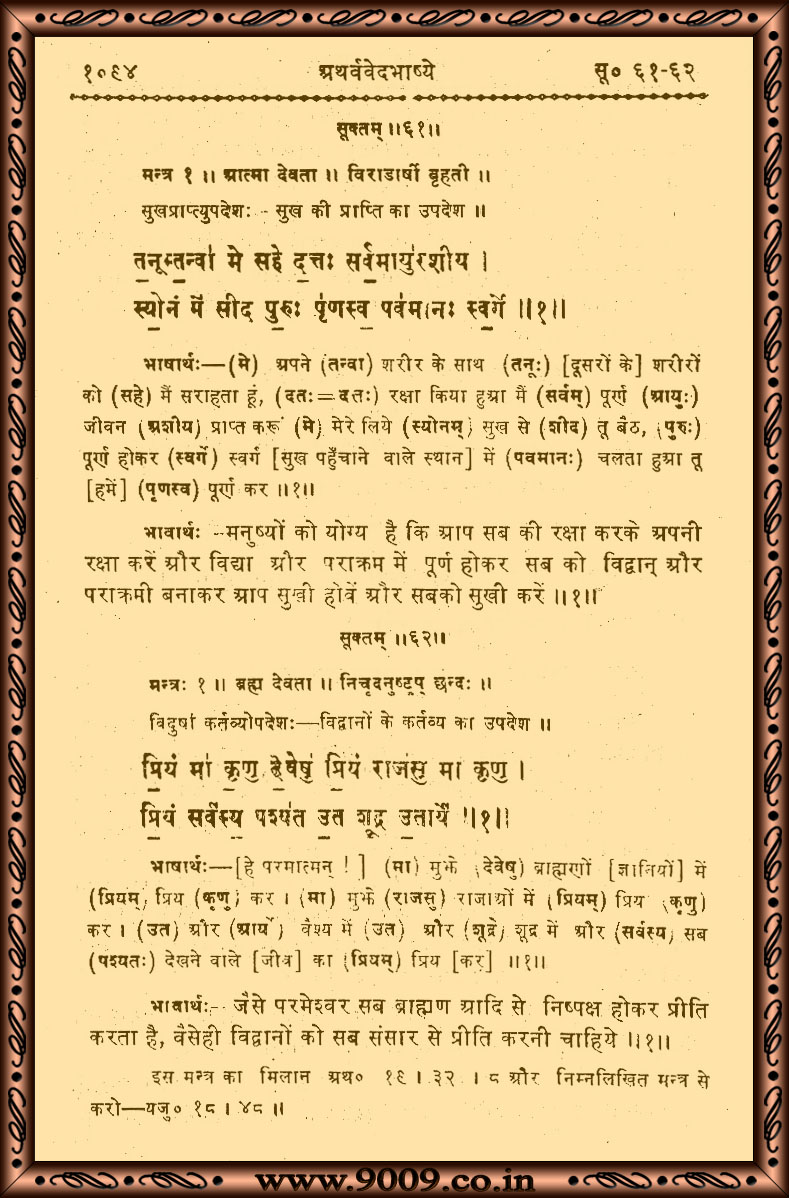 १०९४ अथर्ववेदभाष्ये सू० ६१-६२
सूक्तम् ॥६१॥
मन्त्र १ ॥ आत्मा देवता ॥ विराडार्षी बृहती ॥
सुखप्राप्त्युपदेशः - सुख की प्राप्ति का उपदेश ॥
त॒नूस्त॒न्वा॑ मे सहे द॒तः सर्व॒मायु॑रशीय ।
स्यो॒नं मे॑ सीद पु॒रुः पृ॑णस्व॒ पव॑मानः स्व॒र्गे ॥१॥
भाषार्थः—(मे) अपने (तन्वा) शरीर के साथ (तनूः) [दूसरों के] शरीरों
को (सहे) मैं सराहता हूं, (दतः=दत्तः) रक्षा किया हुआ मैं (सर्वम्) पूर्ण (आयुः)
जीवन (अशीय) प्राप्त करूं (मे) मेरे लिये (स्योनम्) सुख से (शीद) तू बैठ, (पुरुः)
पूर्ण होकर (स्वर्गे) स्वर्ग [सुख पहुँचाने वाले स्थान] में (पवमानः) चलता हुआ तू
[हमें] (पृणस्व) पूर्ण कर ॥१॥
भावार्थः -मनुष्यों को योग्य है कि आप सब की रक्षा करके अपनी
रक्षा करें और विद्या और पराक्रम में पूर्ण होकर सब को विद्वान् और
पराक्रमी बनाकर आप सुखी होवें और सबको सुखी करें ॥१॥
सूक्तम् ॥६२॥
मन्त्रः १ ॥ ब्रह्म देवता ॥ निचृदनुष्टुप् छन्दः ॥
विदुषां कर्तव्योपदेशः—विद्वानों के कर्तव्य का उपदेश ॥
प्रि॒यं मा॑ कृ॒णु दे॒वेषु॑ प्रि॒यं राज॑सु मा कृ॒णु ।
प्रि॒यं सर्व॑स्य॒ पश्य॑त उ॒त शू॒द्र उ॒तार्ये॑ ॥१॥
भाषार्थः—[हे परमात्मन् ! ] (मा) मुझे (देवेषु) ब्राह्मणों [ज्ञानियों] में
(प्रियम्) प्रिय (कृणु) कर । (मा) मुझे (राजसु) राजाओं में (प्रियम्) प्रिय (कृणु)
कर । (उत) और (आर्ये) वैश्य में (उत) और (शूद्रे) शूद्र में और (सर्वस्य) सब
(पश्यतः) देखने वाले [जीव] का (प्रियम्) प्रिय [कर] ॥१॥
भावार्थः-- जैसे परमेश्वर सब ब्राह्मण आदि से निष्पक्ष होकर प्रीति
करता है, वैसेही विद्वानों को सब संसार से प्रीति करनी चाहिये ॥१॥
इस मन्त्र का मिलान अथ० १९ । ३२ । ८ और निम्नलिखित मन्त्र से
करो—यजु० १८ । ४८ ॥
www.9009.co.in